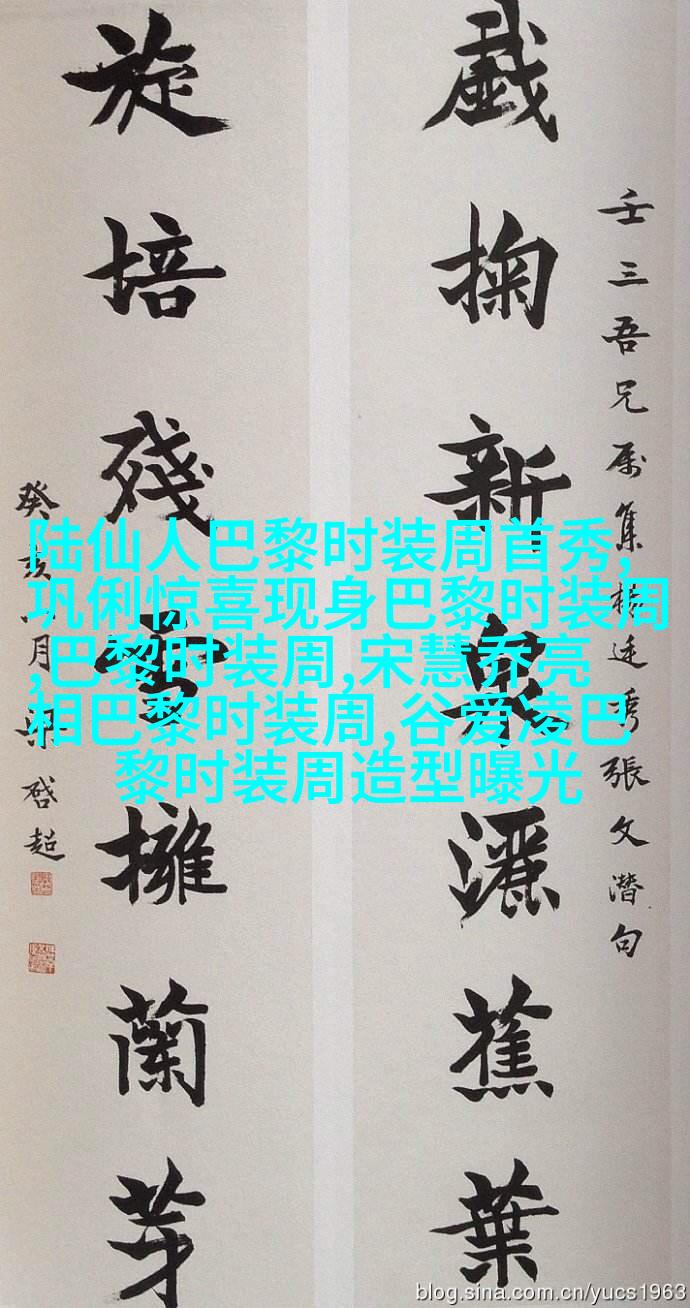 壬三吾兄属集楊廷秀張文潛句
戲掬新泉灑蕉葉
旋培殘雪擁蘭芽
癸亥八月梁啓超
,陆仙人巴黎时装周首秀,
巩俐惊喜现身巴黎时装周
,巴黎时装周,宋慧乔亮
相巴黎时装周,谷爱凌巴
黎时装周造型曝光
blog.sina.com.cn/yucs1963